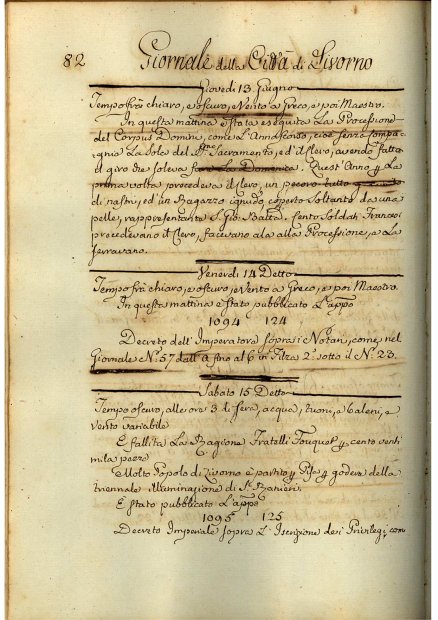 82 Giornale della Città di Livorno
Giovedi 13 Giugno
Tempo frà chiaro, e oscuro, e Vento a Greco, e poi Maestro.
In questa mattina è stata eseguita La Processione
del Corpus Domini, come L'Anno scorso, cioè senza Compa=
gnia La Sole del Sacramento, ed il Clero, avendo fatto
il giro che soleva fare La Domenica. Quest'Anno La
prima volta precedeva il Clero, un pecoro tutto
di nastri, ed un Ragazzo ignudo coperto soltanto da una
pelle, rappresentante S. Gio: Batta. Cento Soldati Francesi
precedevano il Clero, facevano ala alla Processione, e La
serravano.
Venerdi 14 Detto
Tempo frà chiaro, e oscuro, e Vento a Greco, e poi Maestro.
In questa mattina è stato pubblicato L'appo
1094 124
Decreto dell'Imperatore sopra i Notari, come nel
Giornale N.° 57 dall' al 6 in Filza 2.ª sotto il N.° 23.
Sabato 15 Detto
Tempo oscuro, alle ore 3 di sera, acqua, tuoni, e baleni, e
vento variabile
È fallita La Ragione Fratelli Fouquet cento venti
mila pezze
Molto Popolo di Livorno è partito Pisa godere della
triennale illuminazione di S. Ranieri.
È stato pubblicato L'appo
1095 125
Decreto Imperiale sopra L'Iscrizione dei Privilegi, con